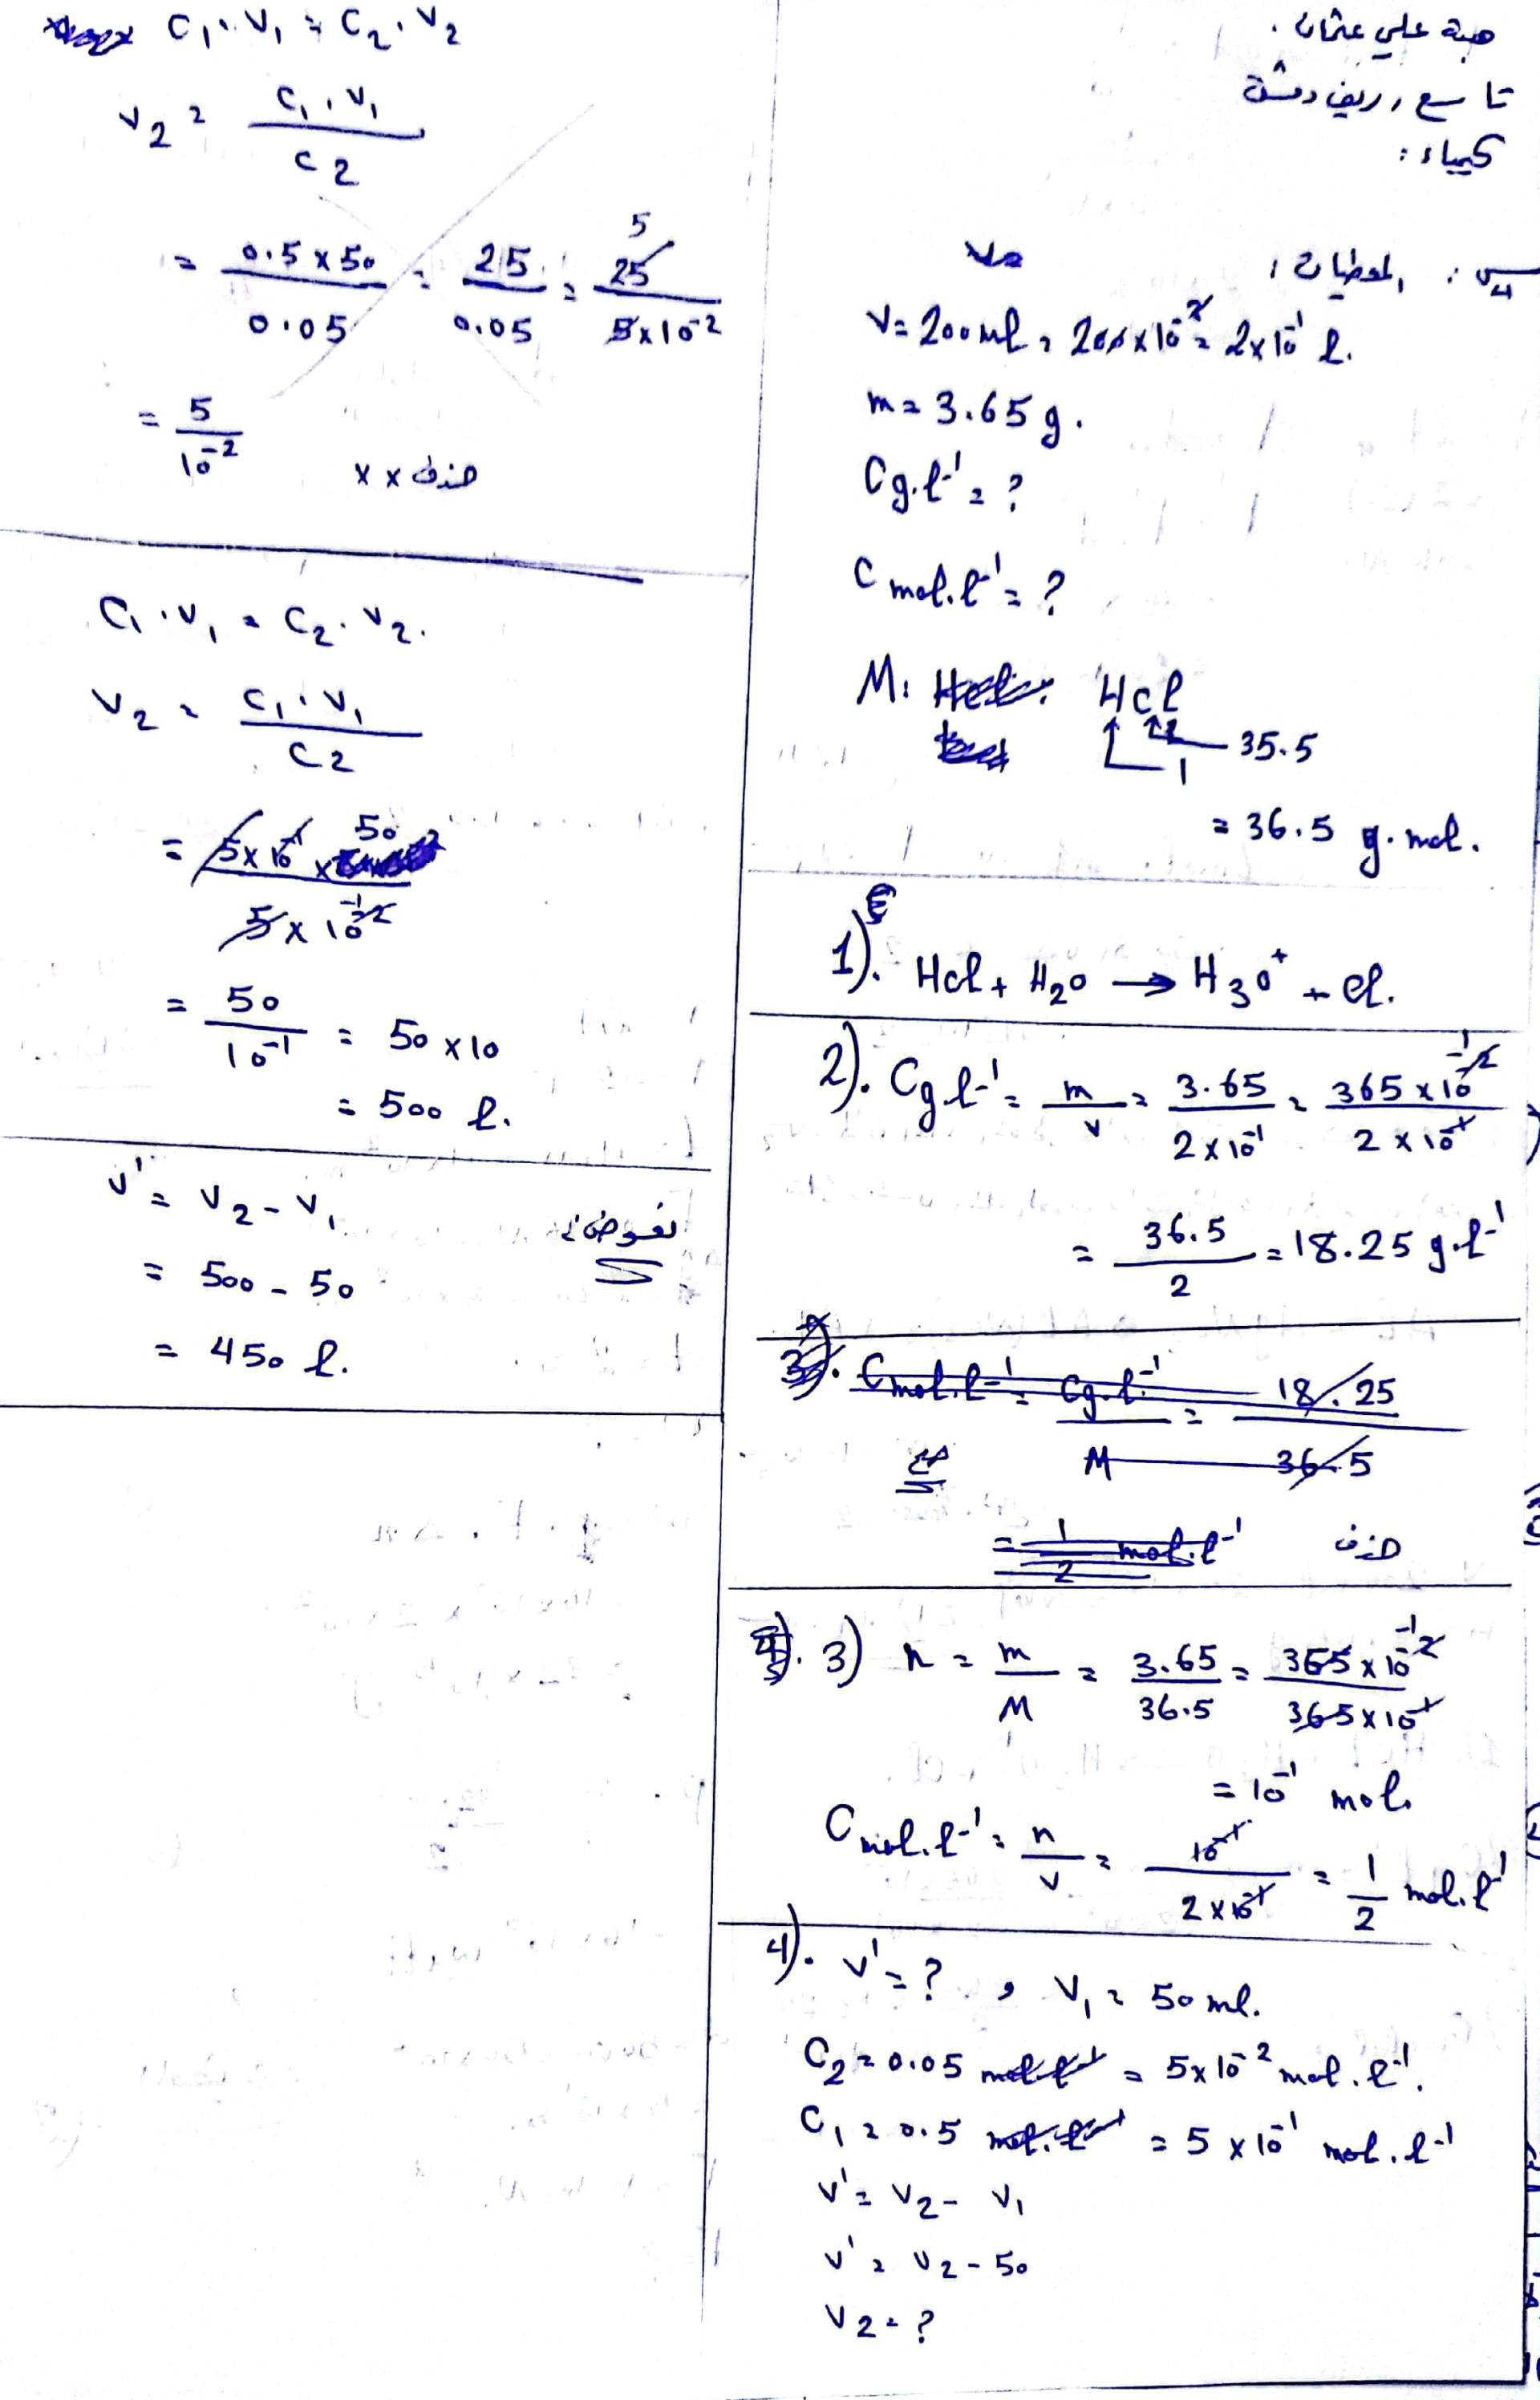 هبة علي عثمان .
تاسع , ريف دمشق
كيمياء :
س4 : المعطيات :
V = 200 ml = 200 x 10⁻³ = 2x10⁻¹ l.
m = 3.65 g.
C g.l⁻¹ = ?
C mol.l⁻¹ = ?
M: HCl
35.5
1
= 36.5 g.mol.
1). HCl + H₂O → H₃O⁺ + Cl.
2). C g.l⁻¹ = m/v = 3.65/(2x10⁻¹) = (365 x 10⁻²)/(2 x 10⁻¹)
= 36.5/2 = 18.25 g.l⁻¹
3). C mol.l⁻¹ = C g.l⁻¹/M = 18.25/36.5
صح
= 1/2 mol.l⁻¹ حذف
3) n = m/M = 3.65/36.5 = (365 x 10⁻²)/(365 x 10⁻¹)
= 10⁻¹ mol.
C mol.l⁻¹ = n/v = 10⁻¹/(2 x 10⁻¹) = 1/2 mol.l⁻¹
4). V' = ? , V₁ = 50 ml.
C₂ = 0.05 mol.l⁻¹ = 5x10⁻² mol.l⁻¹.
C₁ = 0.5 mol.l⁻¹ = 5 x 10⁻¹ mol.l⁻¹
V' = V₂ - V₁
V' = V₂ - 50
V₂ = ?
C₁.V₁ = C₂.V₂
V₂ = C₁.V₁/C₂
= (0.5 x 50)/0.05 = 25/0.05 = 25/(5x10⁻²)
5
= 5/10⁻² x x حذف
C₁.V₁ = C₂.V₂.
V₂ = C₁.V₁/C₂
= (5x10⁻¹ x 50)/(5 x 10⁻²)
= 50/10⁻¹ = 50 x 10
= 500 l.
V' = V₂ - V₁ نعوض :
= 500 - 50
= 450 l.